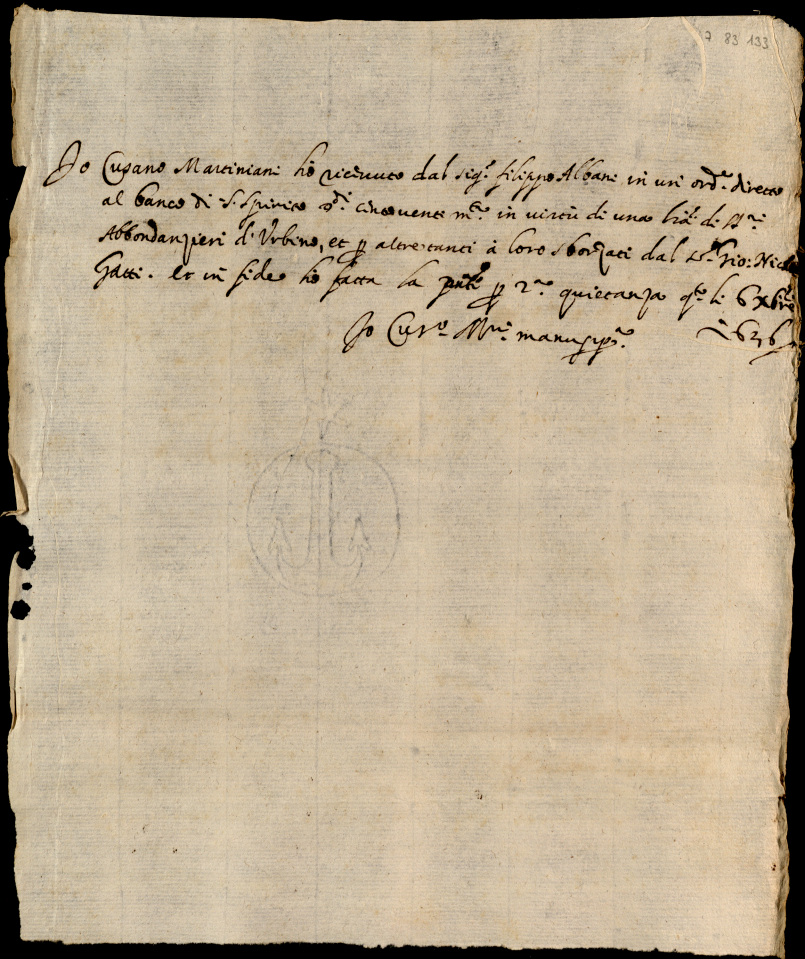 7 83 133
Io Cusano Martiniani hò riceuuto dal Sigr. Filippo Albani in un' ord.e diretto
al banco di S. Spirito di cinquenti m.ta in virtù di una lr̃a di
Abbondanzieri d'Urbino, et p altretanti à loro sborzati dal Gio: Nicolo
Gatti. Et in fede hò fatta la pnte p 2.a quietanza q.to li 6 Xbre
Io Cus.o Mni. manu ppa. 1636